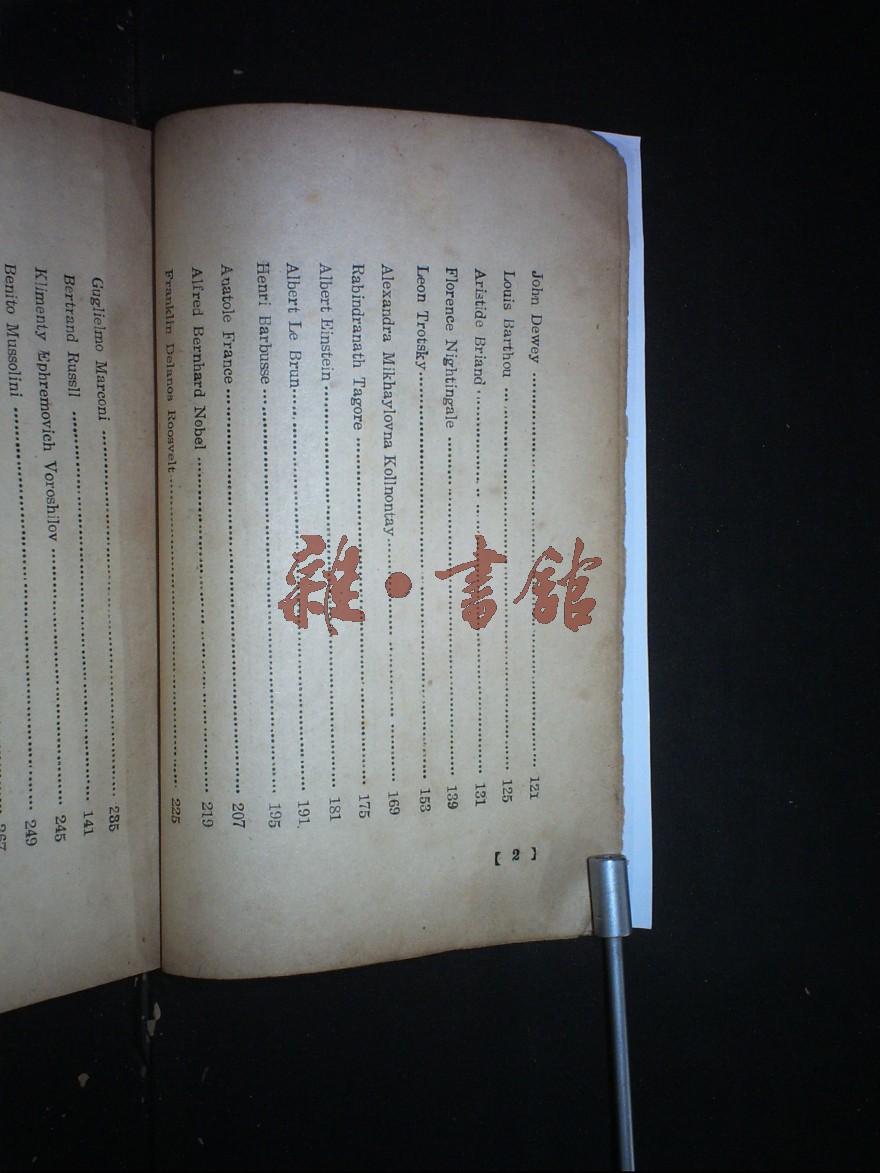 John Dewey ........................ 121
Louis Barthou ........................ 125
Aristide Briand ........................ 131
Florence Nightingale ........................ 139
Leon Trotsky ........................ 153
Alexandra Mikhaylovna Kollnontay ........................ 169
Rabindranath Tagore ........................ 175
Albert Einstein ........................ 181
Albert Le Brun ........................ 191
Henri Barbusse ........................ 195
Anatole France ........................ 207
Alfred Bernhard Nobel ........................ 219
Franklin Delanos Roosvelt ........................ 225
[ 2 ]
Guglielmo Marconi ........................ 235
Bertrand Russll ........................ 141
Klimenty Ephremovich Voroshilov ........................ 245
Benito Mussolini ........................ 249
267
雜·書館